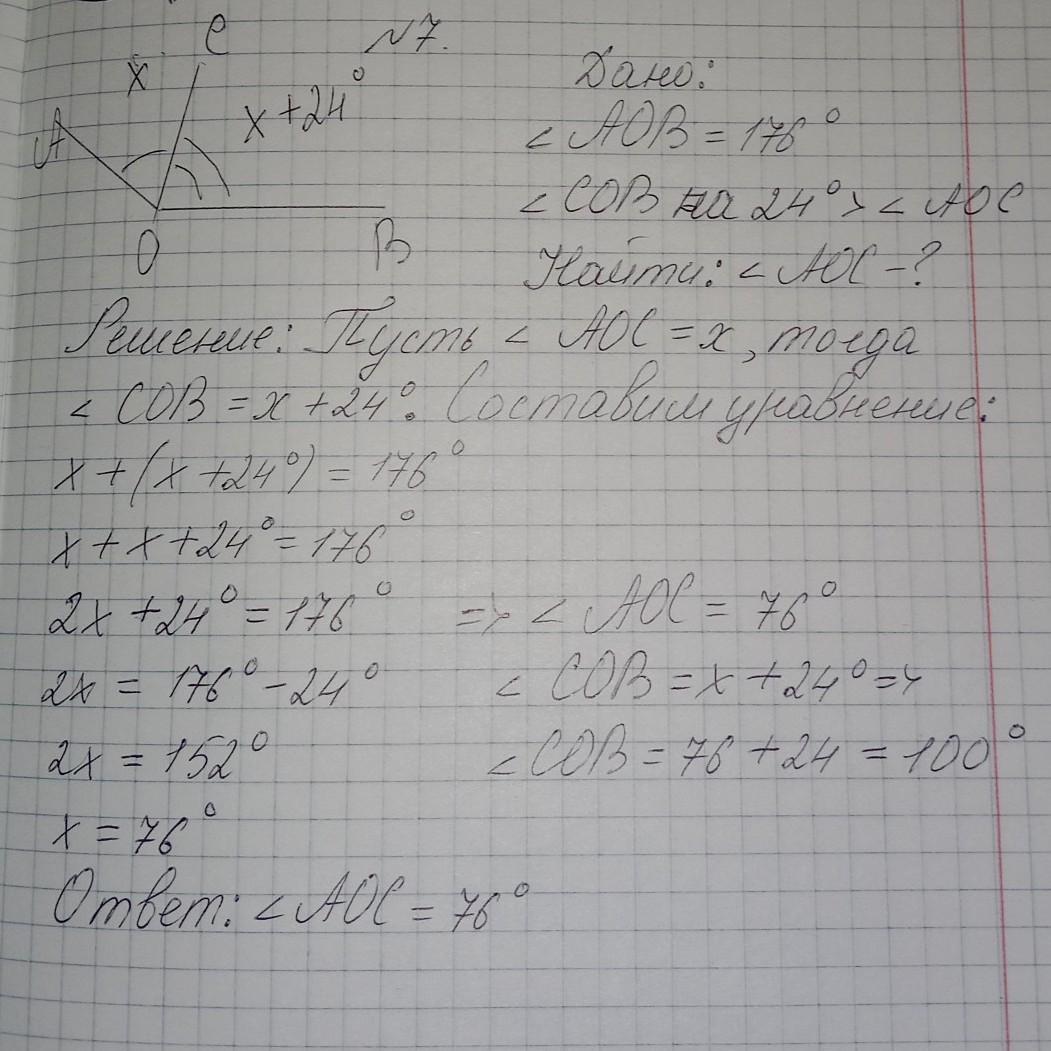 №7.
C
x
x+24°
A
O
B
Дано:
∠AOB = 176°
∠COB на 24° > ∠AOC
Найти: ∠AOC-?
Решение: Пусть ∠ AOC = x, тогда
∠ COB = x + 24°. Составим уравнение:
x + (x + 24°) = 176°
x + x + 24° = 176°
2x + 24° = 176°
2x = 176° - 24°
2x = 152°
x = 76°
=> ∠ AOC = 76°
∠ COB = x + 24° =>
∠COB = 76 + 24 = 100°
Ответ: ∠AOC = 76°